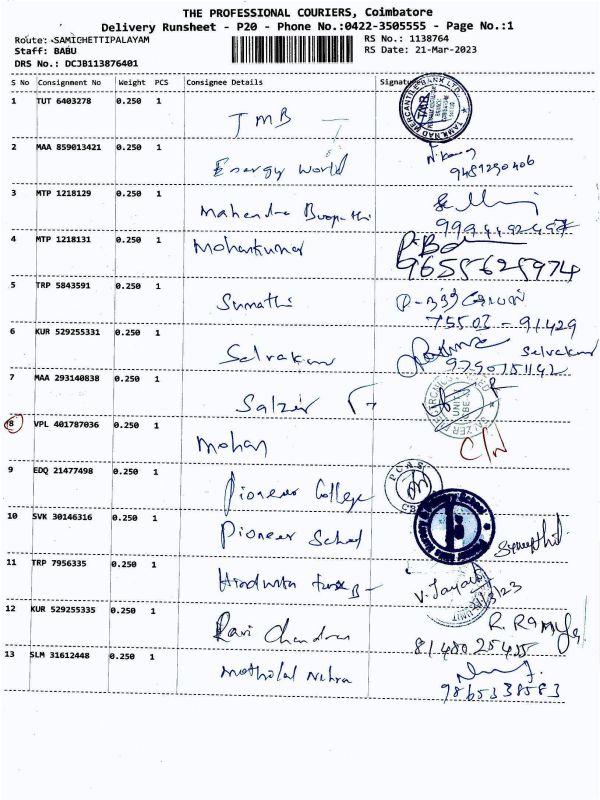 THE PROFESSIONAL COURIERS, Coimbatore
Delivery Runsheet - P20 - Phone No.:0422-3505555 - Page No.:1
Route: SAMICHETTIPALAYAM RS No.: 1138764
Staff: BABU RS Date: 21-Mar-2023
DRS No.: DCJB113876401
S No Consignment No Weight PCS Consignee Details Signature
1 TUT 6403278 0.250 1 TMB
2 MAA 859013421 0.250 1 Energy World
3 MTP 1218129 0.250 1 Mahendra Boopathi
4 MTP 1218131 0.250 1 Mohankumar 9655625974
5 TRP 5843591 0.250 1 Sumathi
75502 - 91429
6 KUR 529255331 0.250 1 Selvakumar Selvakumar
9790751142
7 MAA 293140838 0.250 1 Salzer
8 VPL 401787036 0.250 1 Mohan
9 EDQ 21477498 0.250 1 Pioneer College
10 SVK 30146316 0.250 1 Pioneer School
11 TRP 7956335 0.250 1 Hindustan V. Jayan
12 KUR 529255335 0.250 1 Ravi Chandran
8148025455
13 SLM 31612448 0.250 1 Mothilal Nehra
9865338583